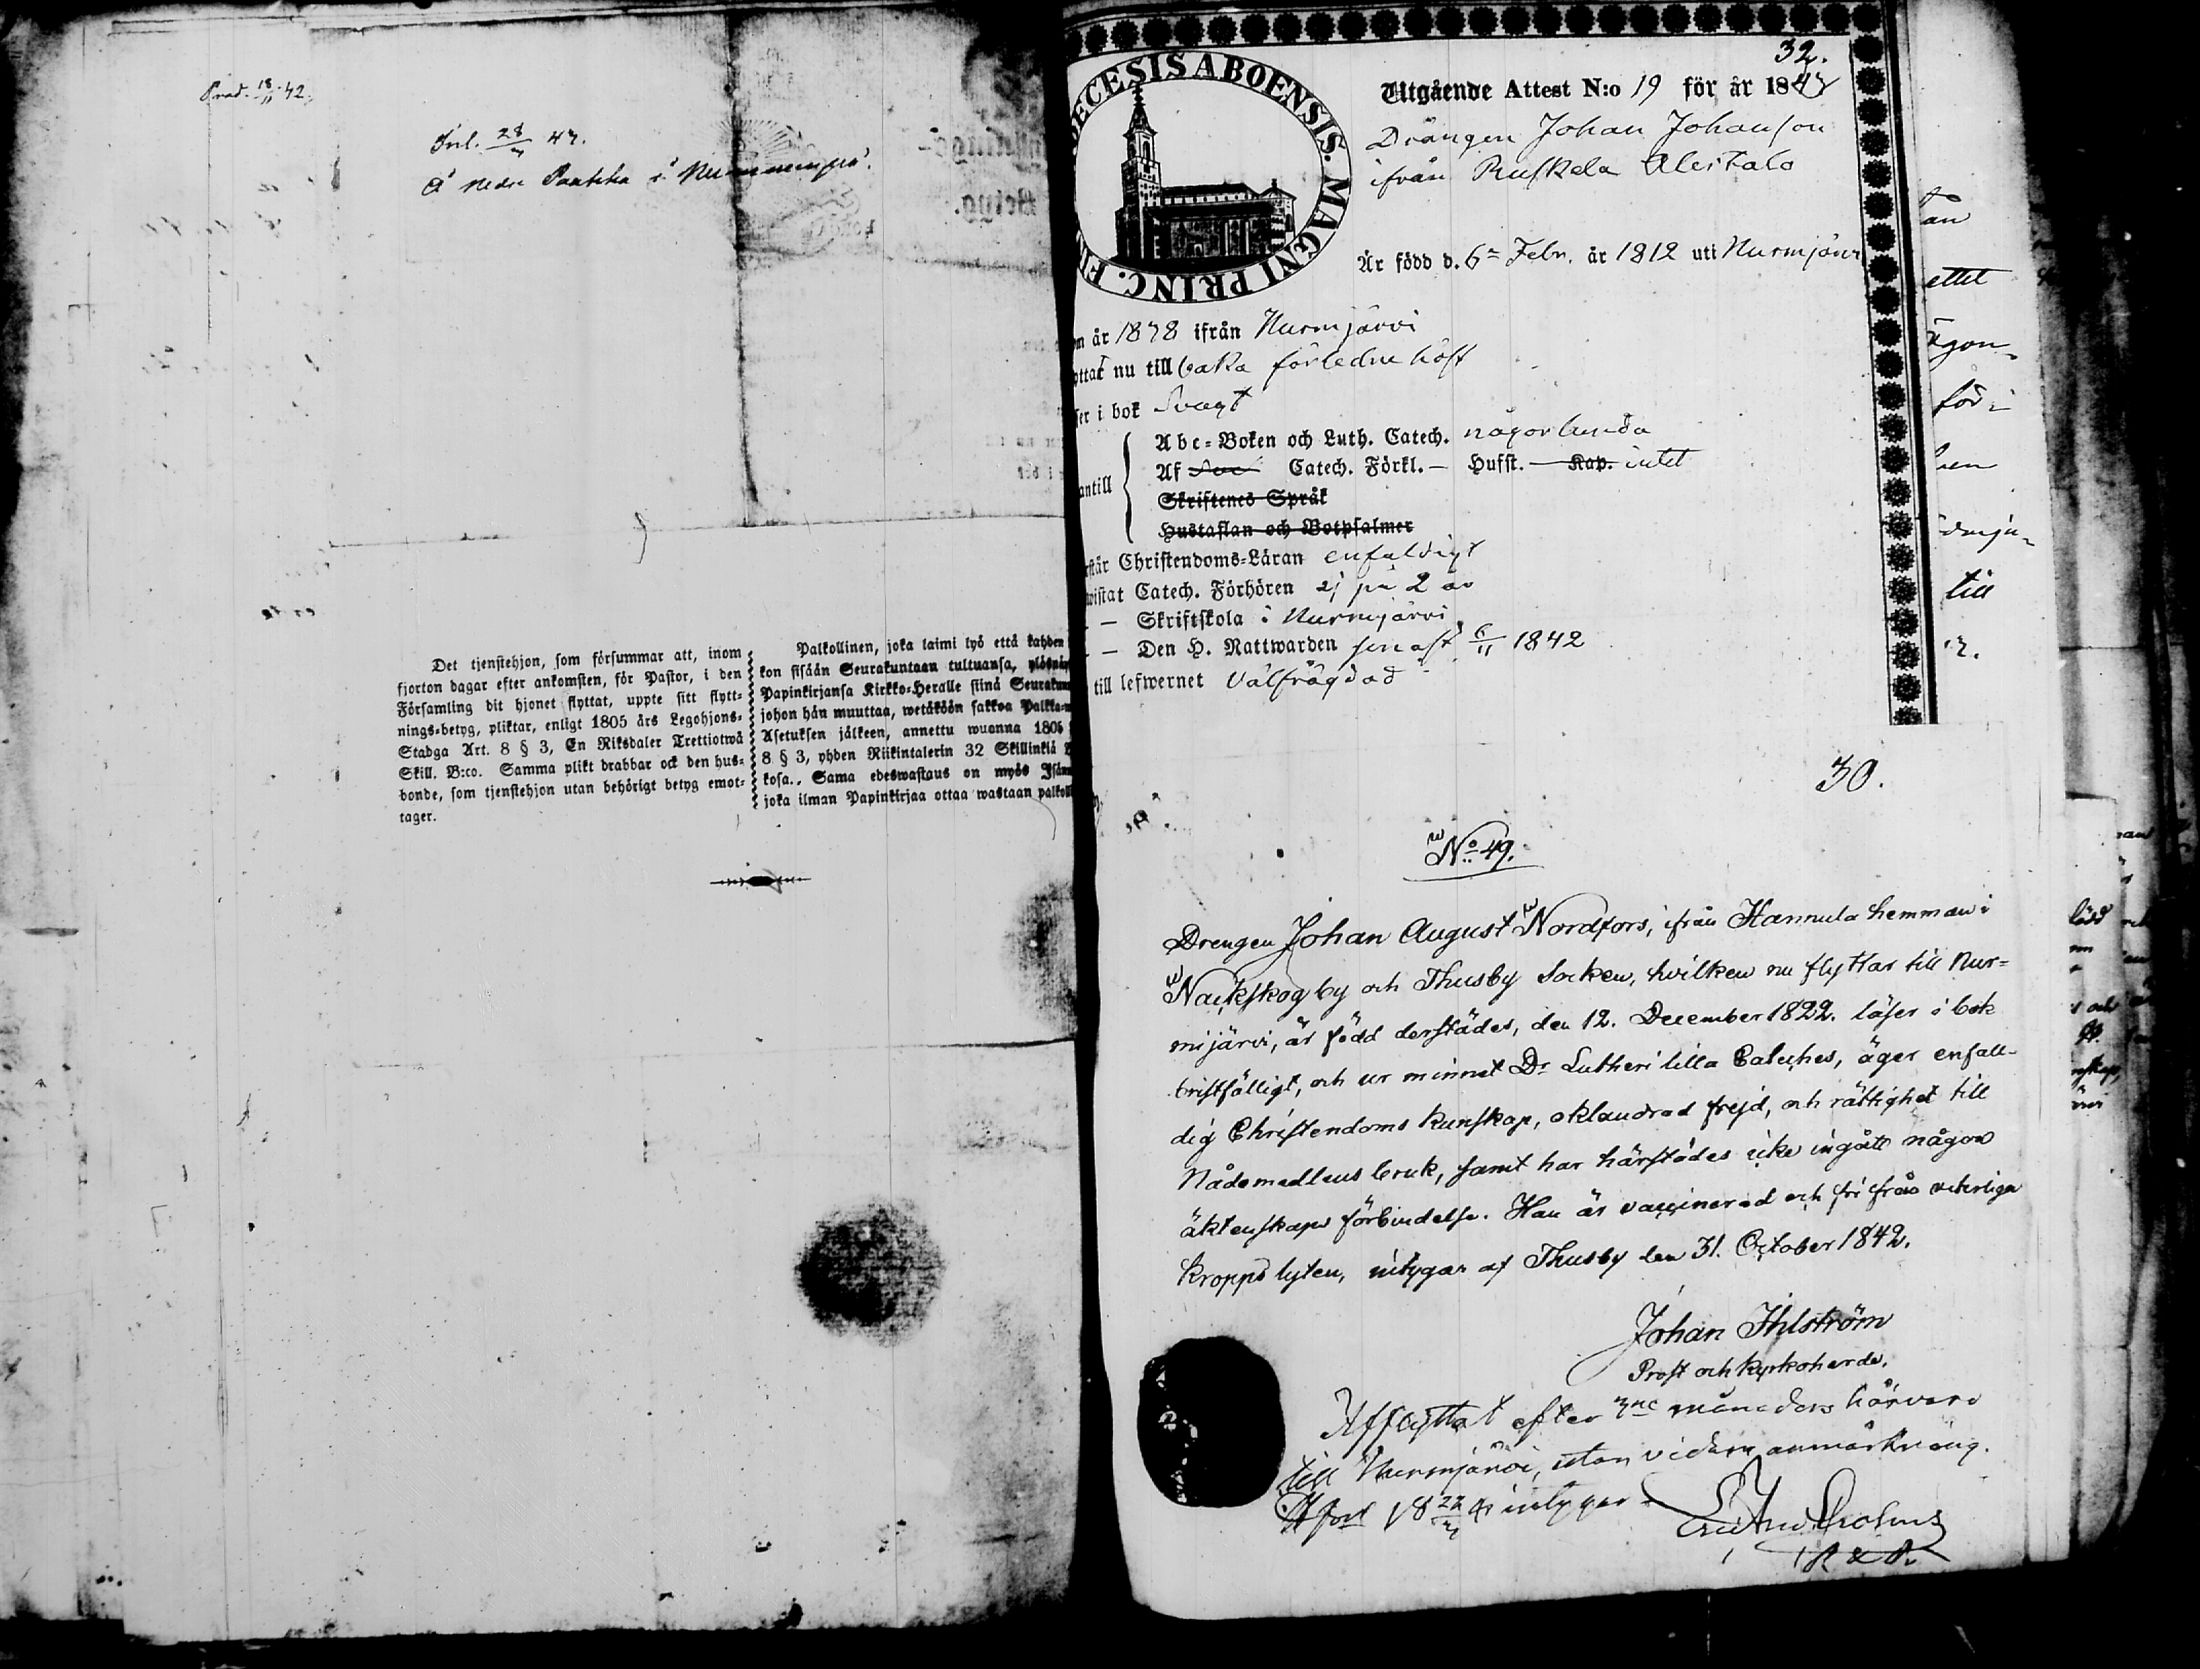 Prod. 18/11 42.
Inl. 28/3 43.
Å nedre Paakka i Nummenpää.
Det tjenstehjon, som försummar att, inom
fjorton dagar efter ankomsten, för Pastor, i den
Församling dit hjonet flyttat, uppte sitt flytt-
nings-betyg, pliktar, enligt 1805 års Legohjons-
Stadga Art. 8 § 3, En Riksdaler Trettiotwå
Skill. B:co. Samma plikt drabbar ock den hus-
bonde, som tjenstehjon utan behörigt betyg emot-
tager.
Palkollinen, joka laimi lyö että kahden
kon sisään Seurakuntaan tultuansa, ylösnäy
Papinkirjansa Kirkko-Heralle siinä Seurakun
johon hän muuttaa, wetäköön sakkoa Palkka-
Asetuksen jälkeen, annettu wuonna 1805
8 § 3, yhden Riikintalerin 32 Skillinkiä
kosa.. Sama edeswastaus on myös Isän
joka ilman Papinkirjaa ottaa wastaan palkoll
32.
ECESIS ABOENSIS. MAGNI PRINC. F
Utgående Attest N:o 19 för år 1843
Drängen Johan Johansson
ifrån Ruskela Alestalo
Är född d. 6te Febr. år 1812 uti Nurmijärvi
n år 1838 ifrån Nurmijärvi
yttat nu till baka förledne höst
ser i bok Svagt
Abc-Boken och Luth. Catech. någorlunda
antill
Af Catech. Förkl. — Husst. — Kap. intet
Skriftenes Språk
Hustaflan och Botpsalmer
rstår Christendoms-Läran enfaldigt
wistat Catech. Förhören ej på 2 år
— Skriftskola i Nurmijärvi
— Den H. Nattwarden senast 6/11 1842
till lefwernet Välfrägdad
30.
No 49.
Drengen Johan August Nordfors, ifrån Hannula hemman i
Nackskog by och Thusby Socken, hvilken nu flyttar till Nur-
mijärvi, är född derstädes, den 12. December 1822. läser i bok
bristfälligt, och ur minnet Dr Lutheri lilla Cateches, äger enfall-
dig Christendoms kunskap, oklandrad frejd, och rättighet till
Nådemedlens bruk, samt har härstädes icke ingått någon
äktenskaps förbindelse. Han är vaccinerad och fri från veterliga
kropps lyten, intygar af Thusby den 31. October 1842.
Johan Ihlström
Prost och Kyrkoherde.
Afflyttat efter 3ne månaders härvaro
till Nurmijärvi, utan vidare anmärkning.
intygar